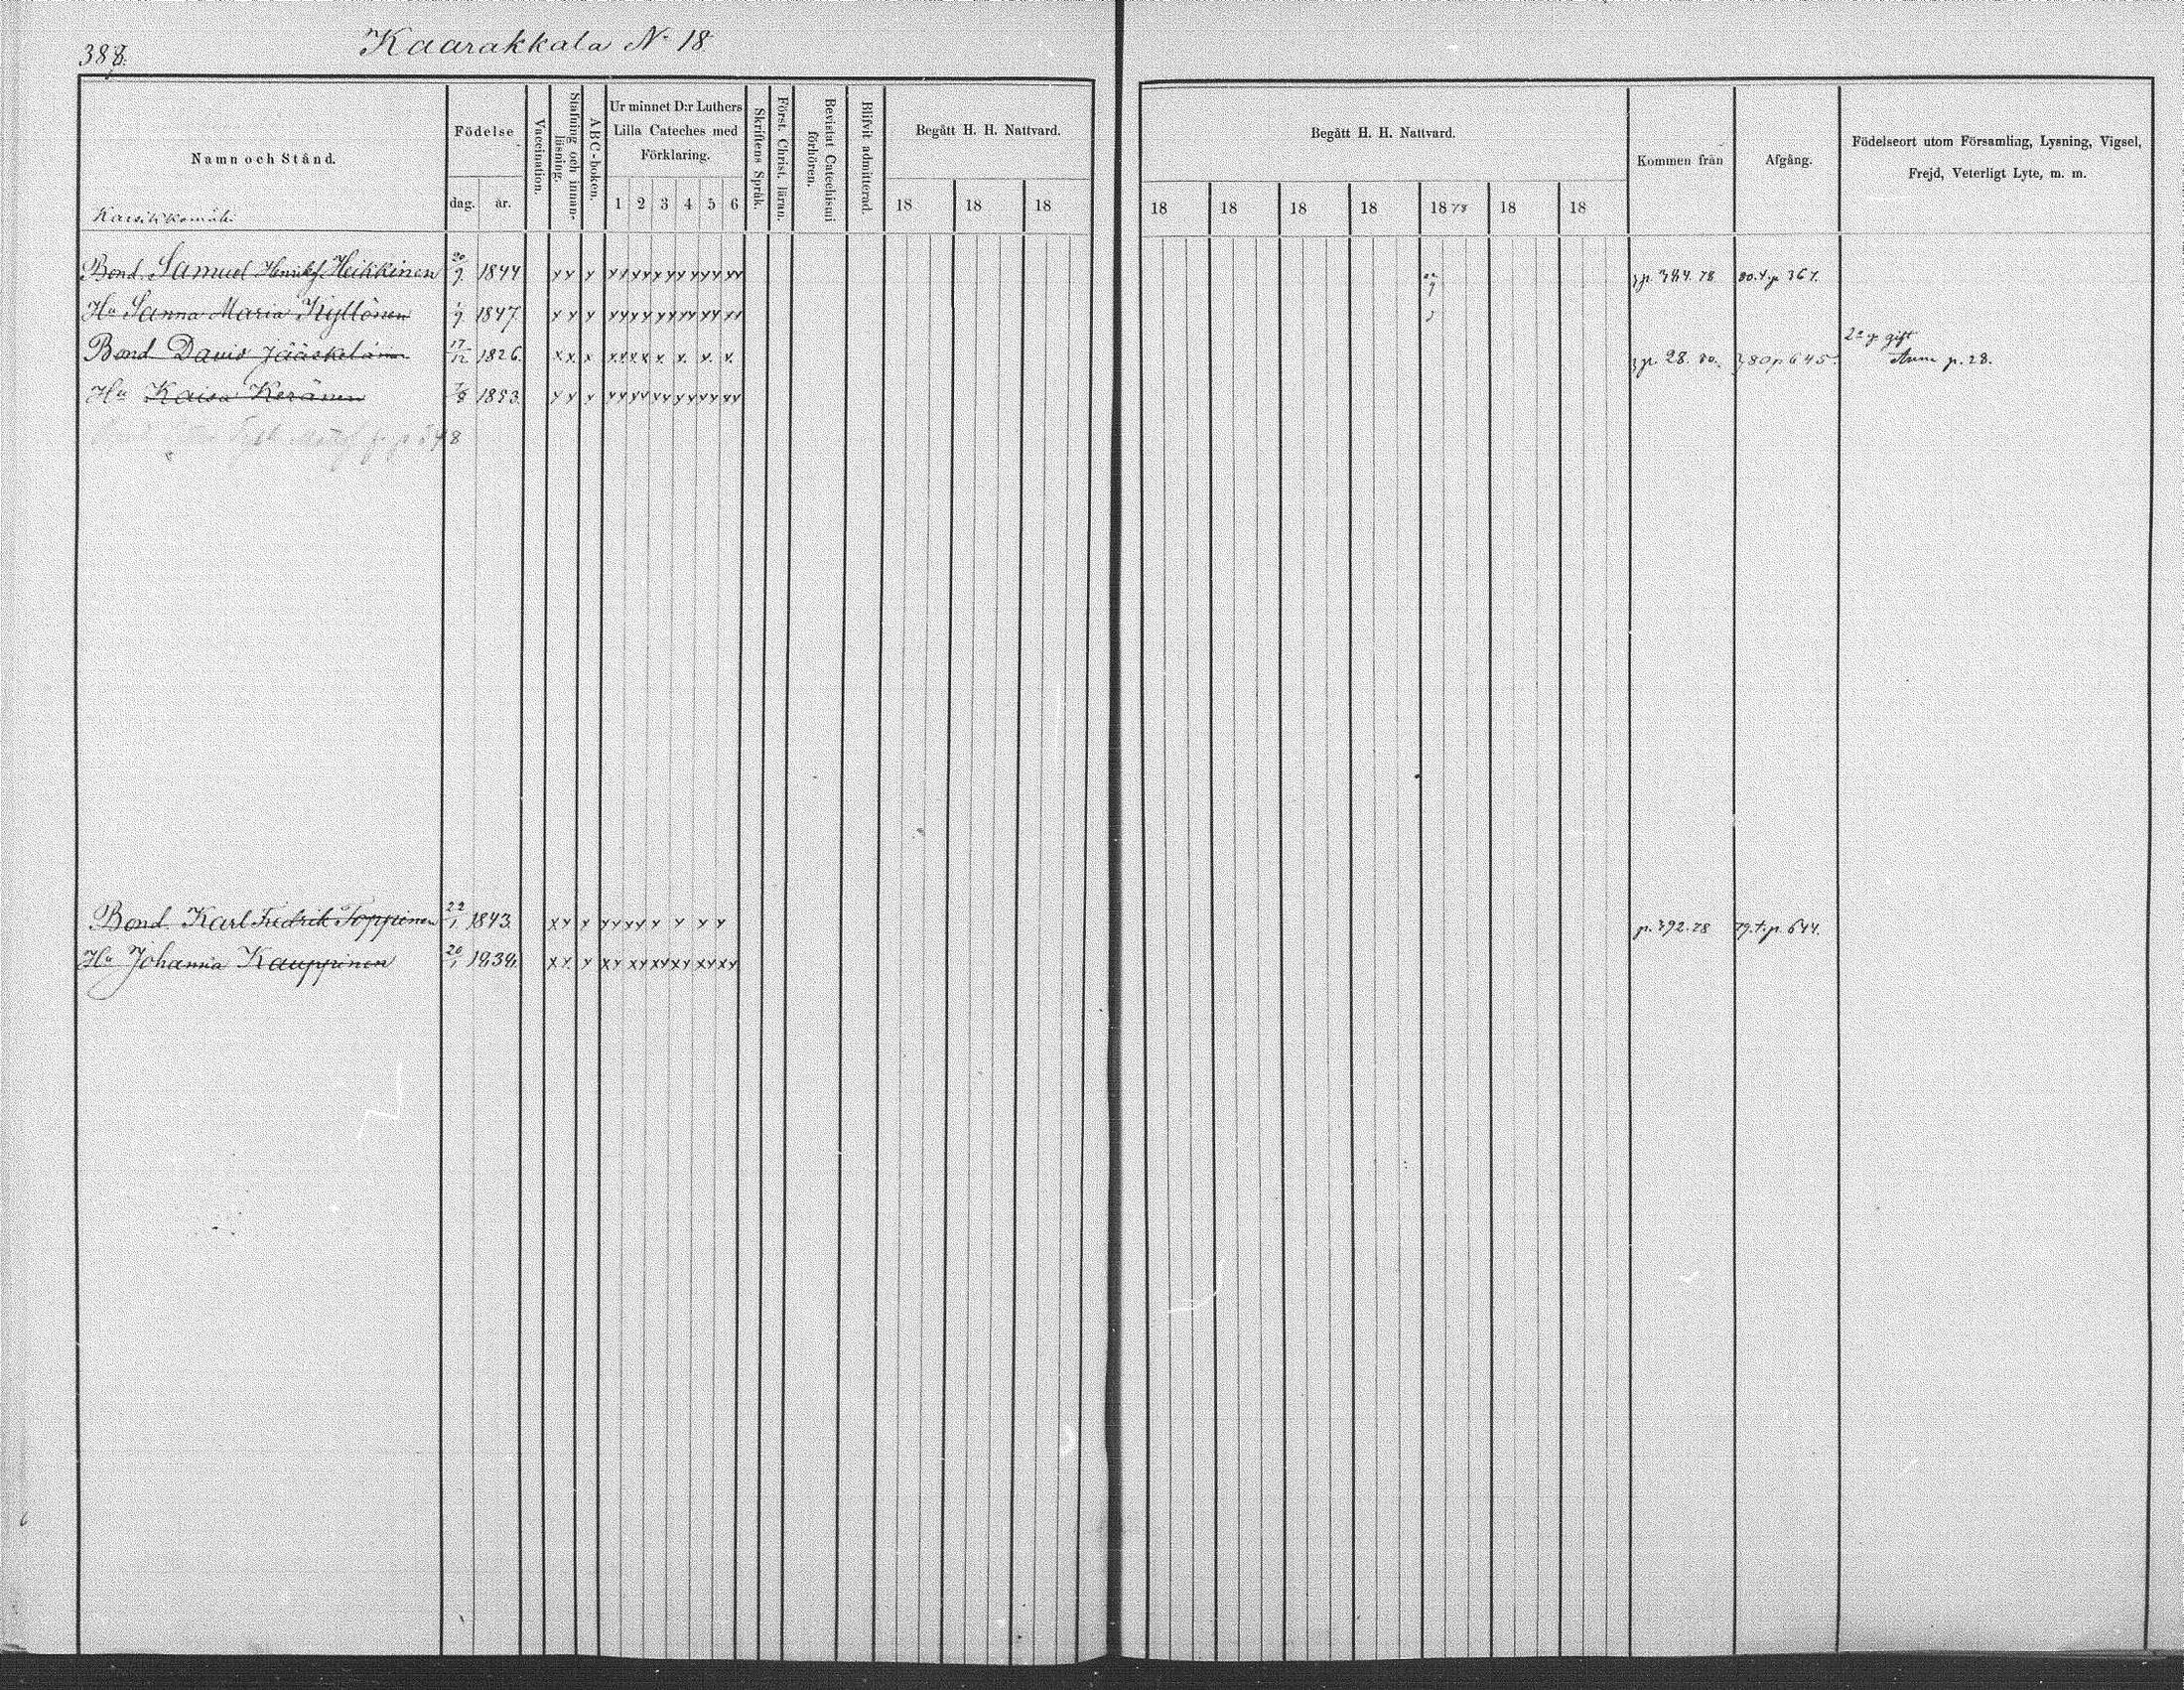 388.
Kaarakkala No 18
Namn och Stånd.
Födelse
dag.
år.
Vaccination.
Stafning och innan-
läsning.
ABC-boken.
Ur minnet D:r Luthers
Lilla Cateches med
Förklaring.
1 2 3 4 5 6
Skriftens Språk.
Först. Christ. läran.
Bevistat Catechismi
förhören.
Blifvit admitterad.
Begått H. H. Nattvard.
18 18 18
Begått H. H. Nattvard.
18 18 18 18 1878 18 18
Kommen från
Afgång.
Födelseort utom Församling, Lysning, Vigsel,
Frejd, Veterligt Lyte, m. m.
Bond. Samuel Henriksf Heikkinen 20/9. 1844 xx x xx xx xx xx xx xx p. 384.78 80.t.p 367.
Hu Sanna Maria Kyllönen 1/9. 1847. xx x xx xx xx xx xx xx
Bond David Jääskeläinen 17/12 1826. xx. x xx xx x. x. x. x. p. 28. 80. 80 p 645. 2a g gift
Anm p. 28.
Hu Kaisa Keränen 1853. xx x xx xx xx xx xx xx
Bond. Karl Fredrik Toppinen 22/1 1843. xx x xx xx x x x x p. 392.78 79.t.p. 644.
Hu Johanna Kauppinen 20/1 1838. xx. x xx xx xx xx xx xx